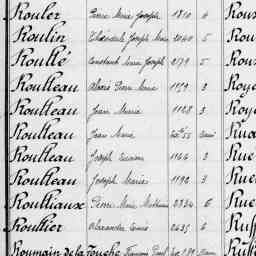 Rouler Pierre Marie Joseph 1810 4 Rous
Roulin Théodule Joseph Marie 2040 5 Rous
Roullé Constant Marie Joseph 2179 5 Rous
Roulleau Alexis Pierre Marie 1179 3 Roye
Roulleau Jean Marie 1128 3 Roye
Roulleau Jean Marie
Roulleau Joseph 1144 3 Rue
Roulleau Joseph Marie 1190 3 Ruel
Roulliaux Pierre Marie 2334 6 Ruel
Roullier Alexandre Louis 2435 6 Ruff
Roumain de la Touche François Paul